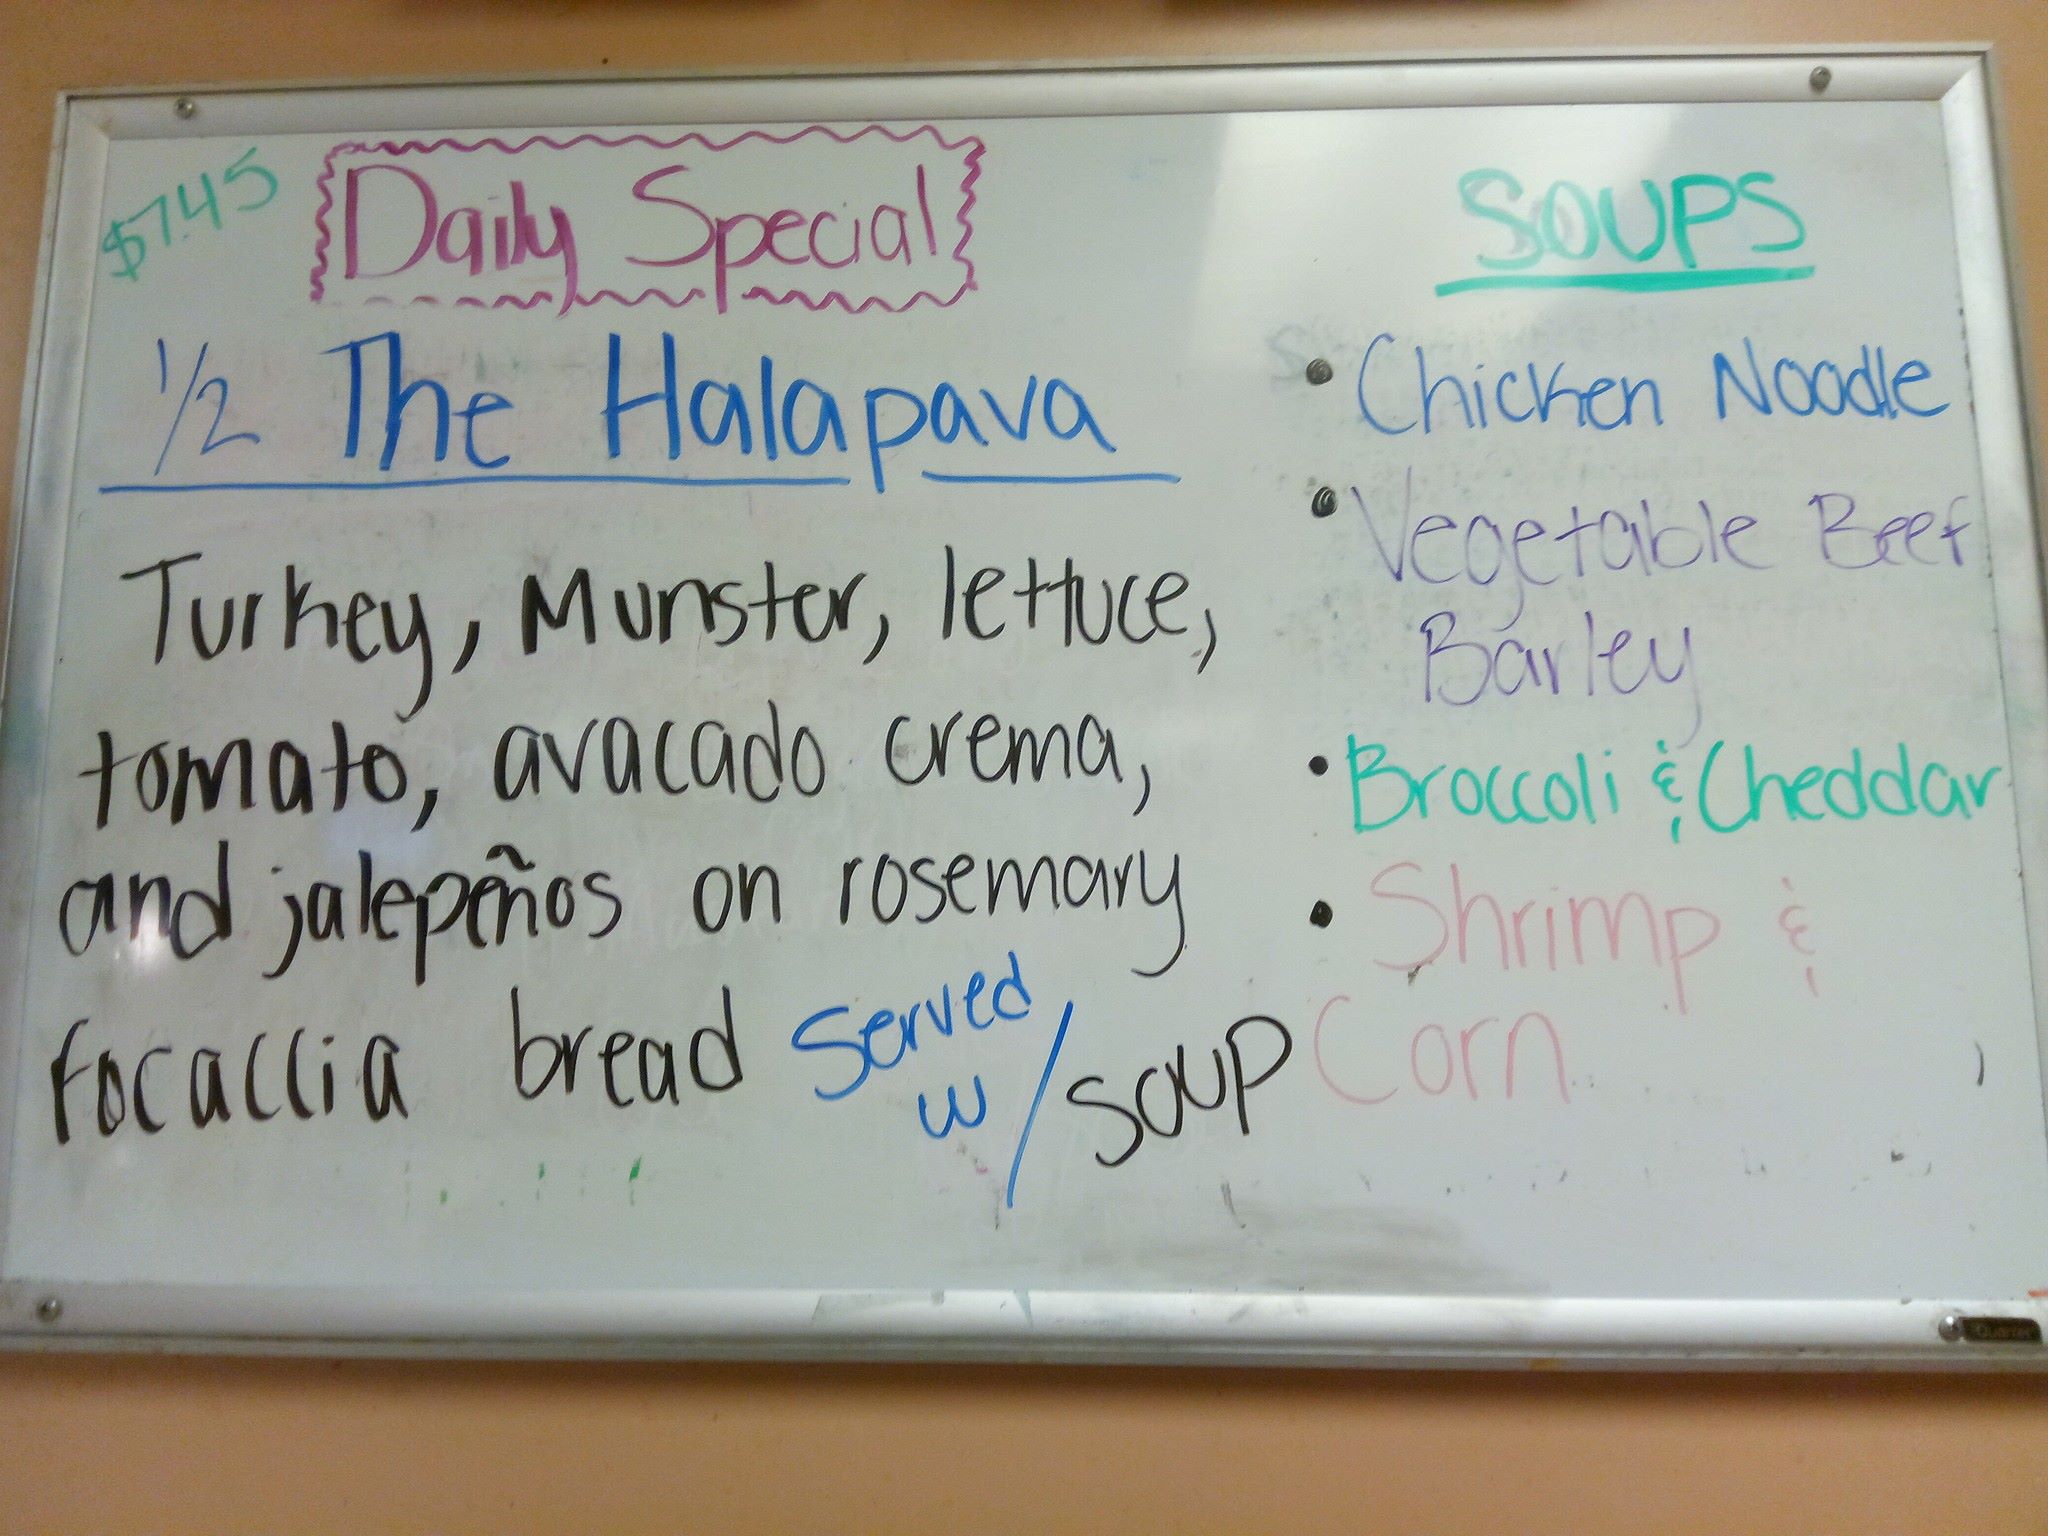 $7.45
Daily Special
1/2 The Halapava
Turkey, Munster, lettuce,
tomato, avacado crema,
and jalepeños on rosemary
focaccia bread Served
w/soup
SOUPS
• Chicken Noodle
• Vegetable Beef
Barley
• Broccoli & Cheddar
• Shrimp &
Corn
Quartet